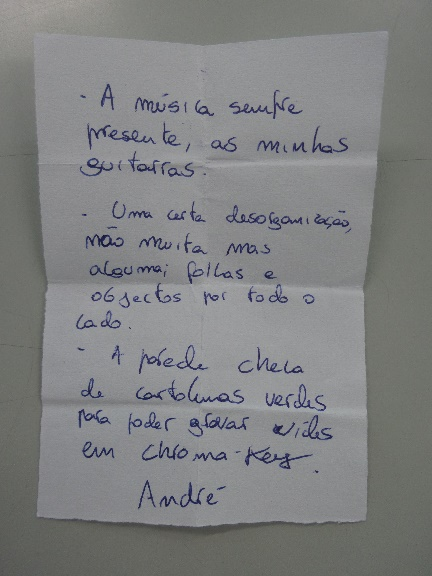 - A música sempre
presente, as minhas
guitarras.
- Uma certa desorganização,
não muita mas
algumas folhas e
objectos por todo o
lado.
- A parede cheia
de cartolinas verdes
para poder gravar vídeos
em chroma-key.
André